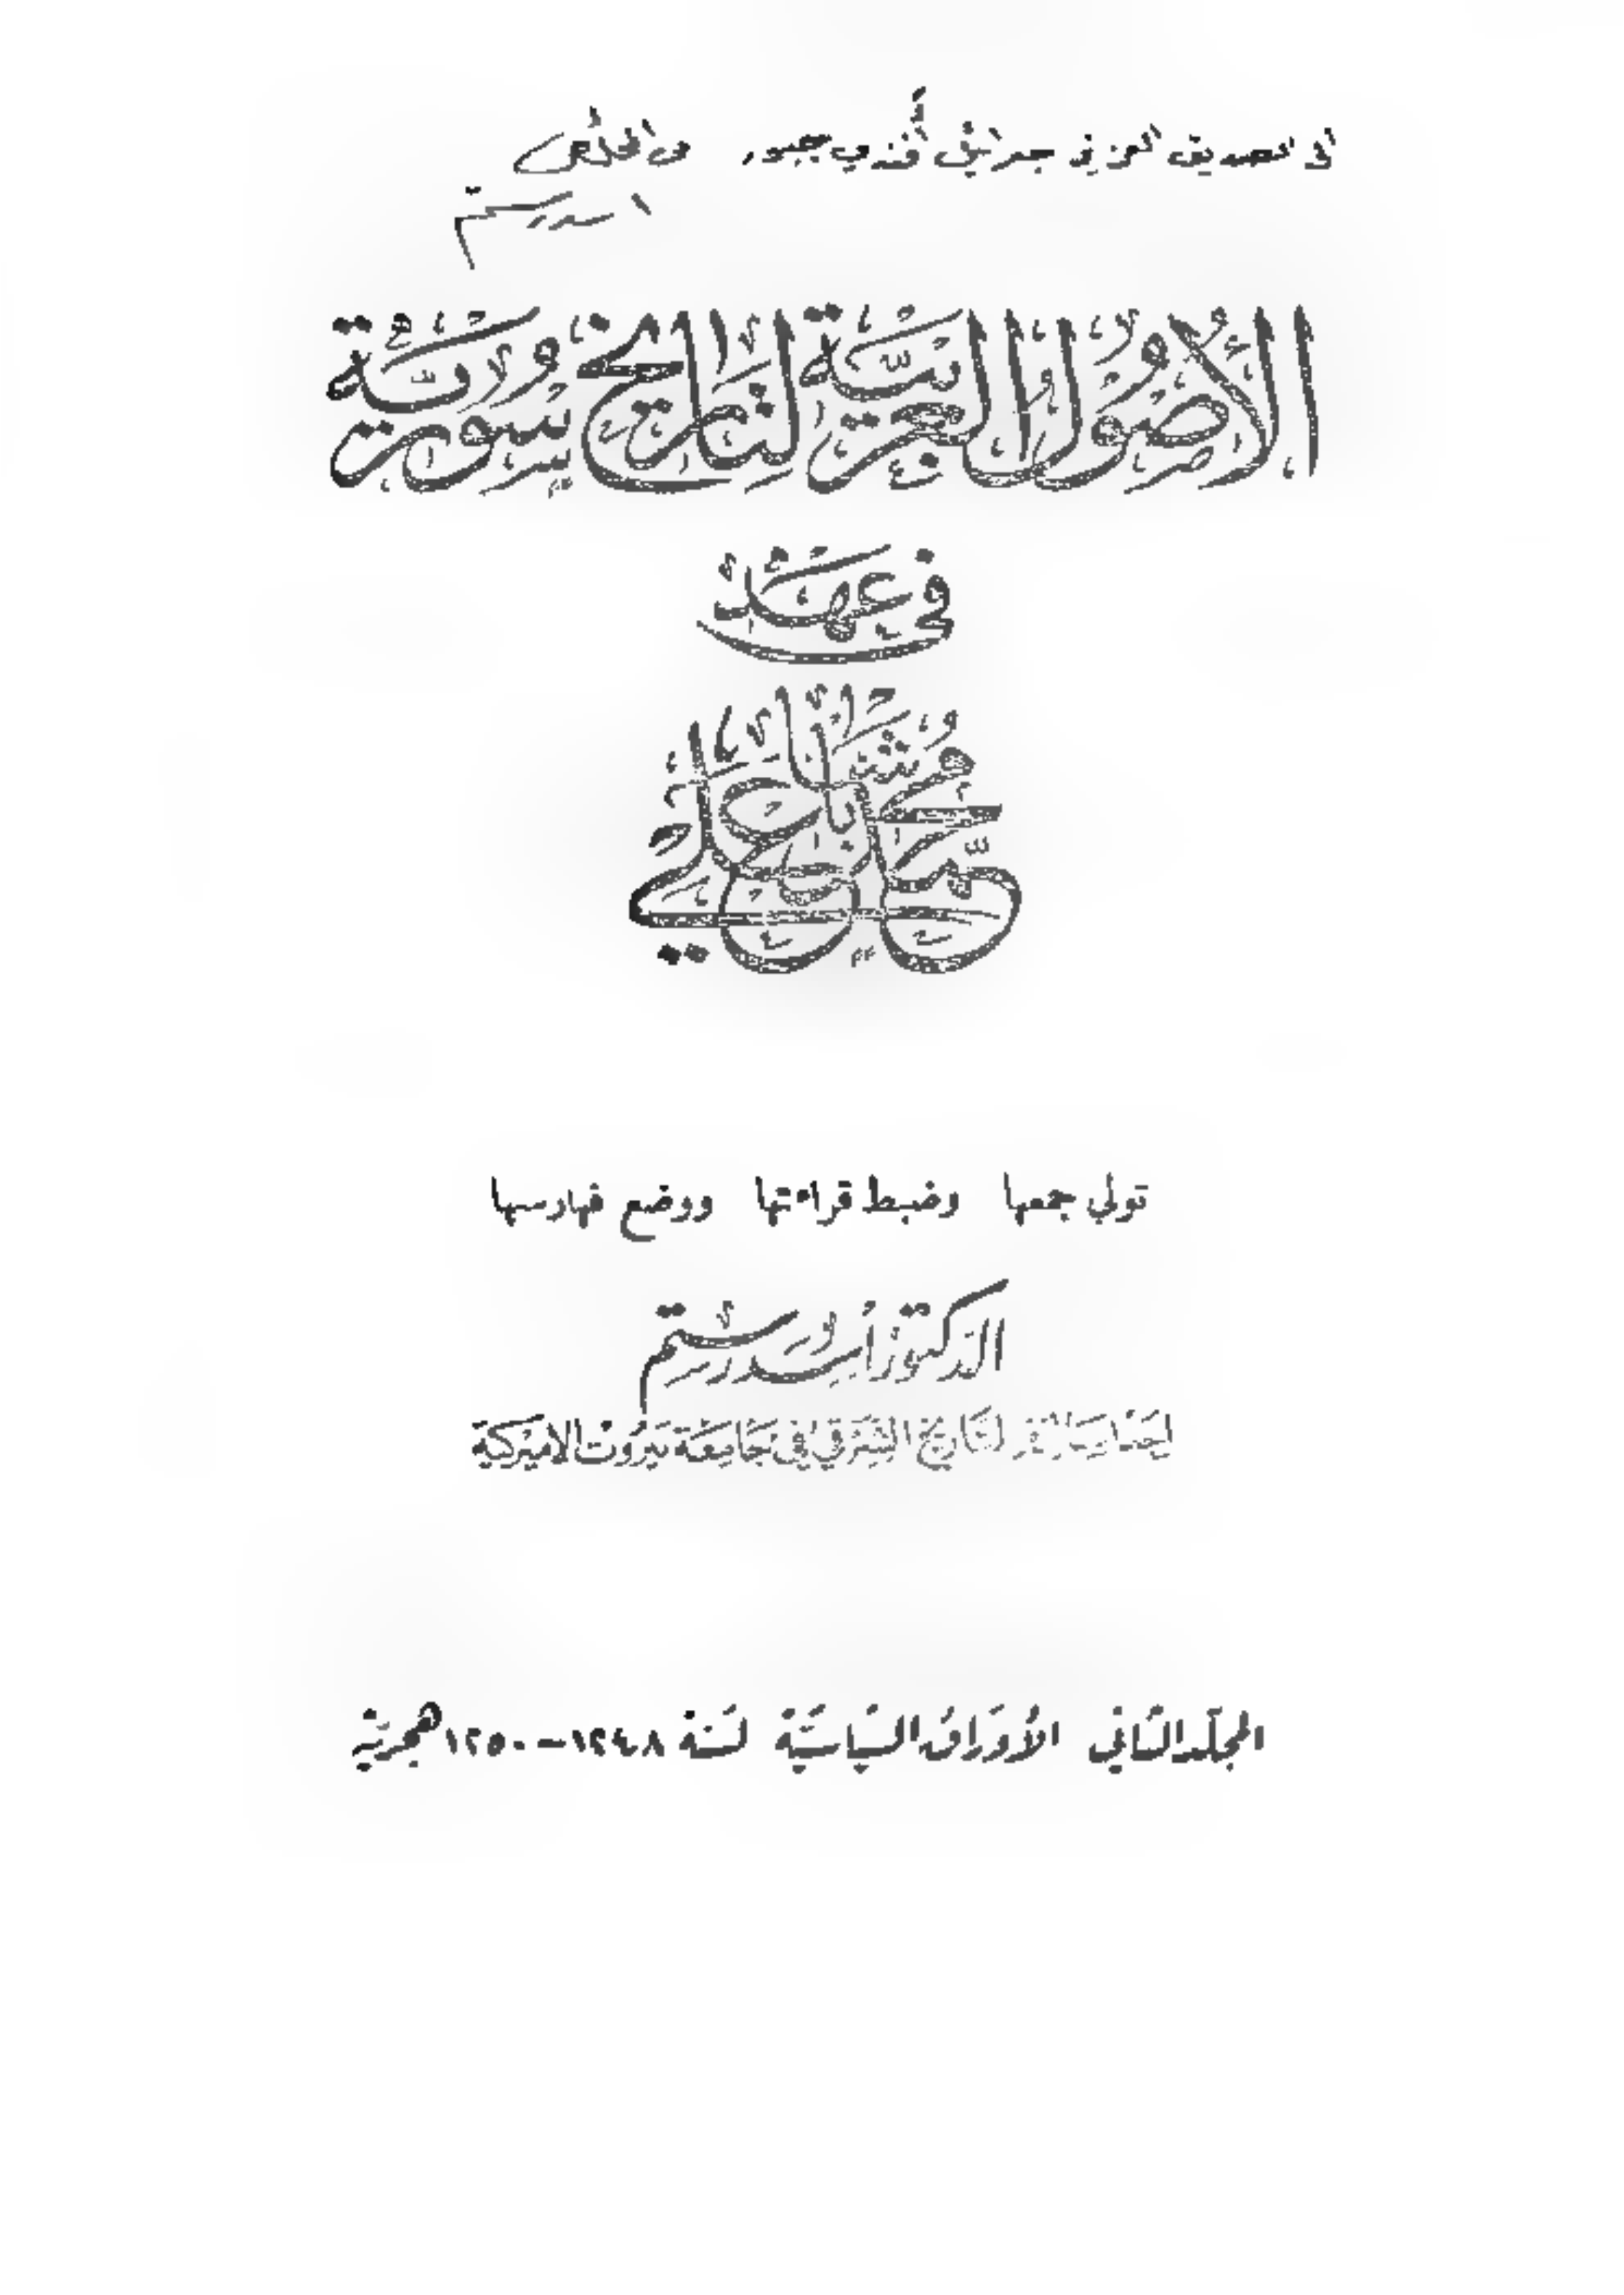 الى الصديق العزيز جبرائيل أفندي جبور من المخلص
اسد رستم
الأصول العربية لتاريخ سورية
في عهد
محمد علي باشا
تولي جمعها وضبط قراءتها ووضع فهارسها
الدكتور أسد رستم
احد اساتذة التاريخ الشرقي في جامعة بيروت الاميركية
المجلد الثاني الأوراق السياسية لسنة ١٢٤٨-١٢٥٠ هجرية